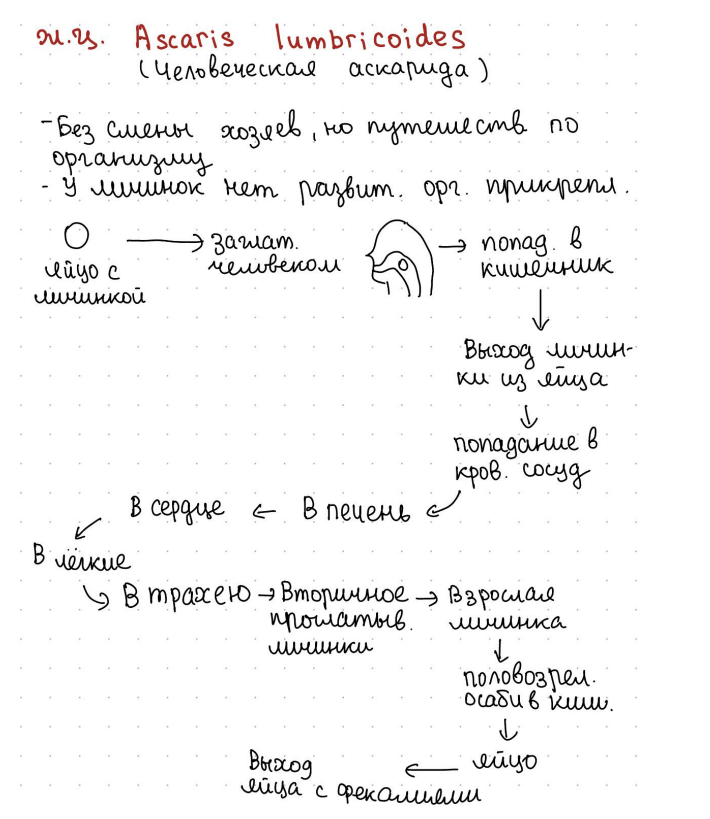 ж.ц. Ascaris lumbricoides
(Человеческая аскарида)
- Без смены хозяев, но путешеств по
организму
- У личинок нет развит. орг. прикрепл.
яйцо с
личинкой
заглат.
человеком
попад. в
кишечник
Выход личин-
ки из яйца
попадание в
кров. сосуд
В печень
В сердце
В лёгкие
В трахею
Вторичное
проглатыв.
личинки
Взрослая
личинка
половозрел.
особи в киш.
яйцо
Выход
яйца с фекалиями